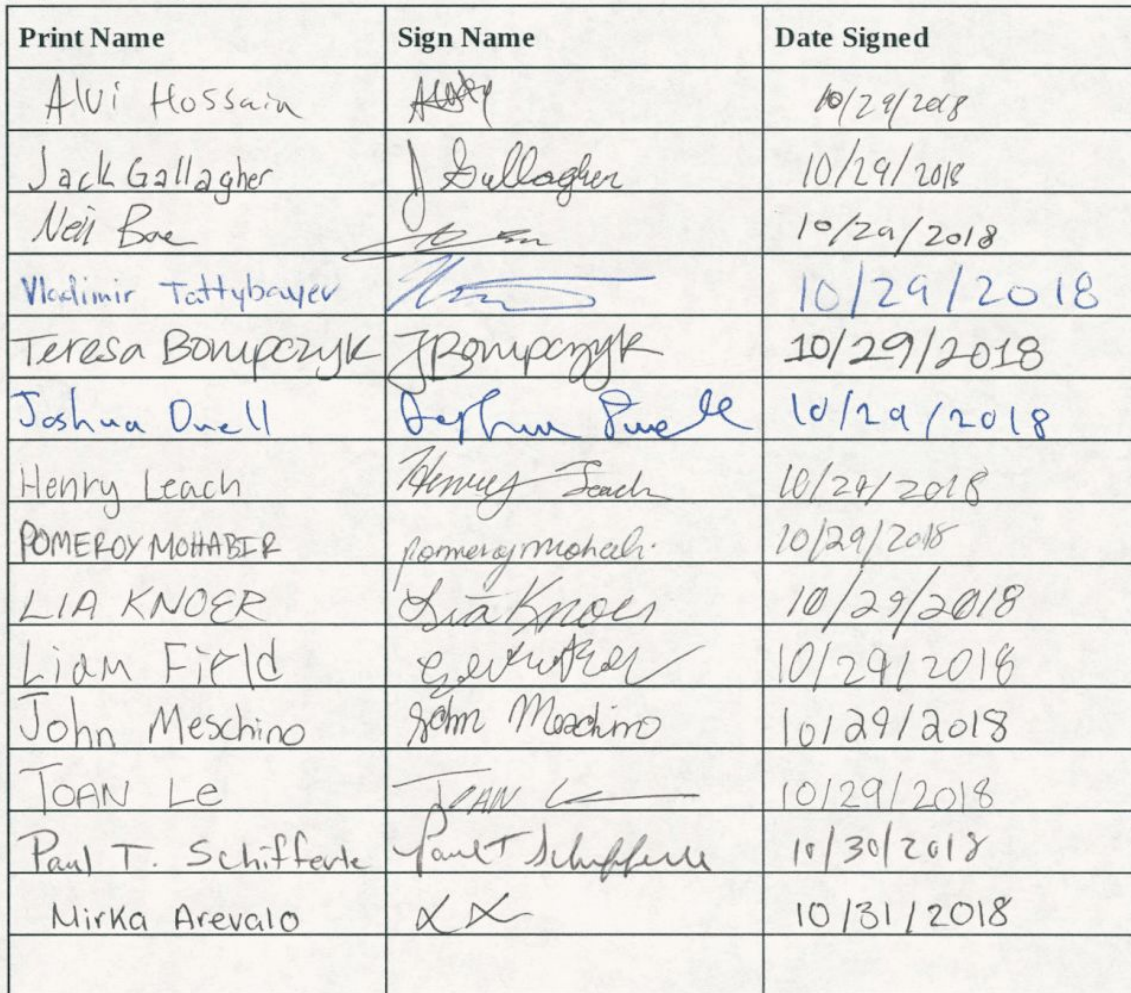 Print Name Sign Name Date Signed
Alvi Hossain 10/29/2018
Jack Gallagher J Gallagher 10/29/2018
Neil Bae 10/29/2018
Vladimir Tattybayev 10/29/2018
Teresa Bomipczyk TBomipczyk 10/29/2018
Joshua Duell Joshua Duell 10/29/2018
Henry Leach Henry Leach 10/29/2018
POMEROY MOHABIR pomeroymohabir 10/29/2018
LIA KNOER Lia Knoer 10/29/2018
Liam Field 10/29/2018
John Meschino John Meschino 10/29/2018
TOAN Le TOAN Le 10/29/2018
Paul T. Schifferle Paul T Schifferle 10/30/2018
Mirka Arevalo 10/31/2018